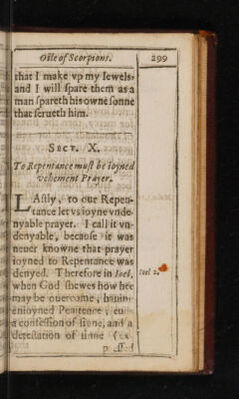 Oile of Scorpions. 299
that I make vp my Iewels,
and I will ſpare them as a
man ſpareth his owne ſonne
that ſerueth him.
SECT. X.
To Repentance muſt be ioyned
vehement Prayer.
LAſtly, to our Repen-
tance let vs ioyne vnde-
nyable prayer. I call it vn-
denyable, becauſe it was
neuer knowne that prayer
ioyned to Repentance was
denyed. Therefore in Ioel, Ioel 2.
when God ſhewes how hee
may be ouercome, hauing
enioyned Penitence,
a confeſſion of ſinne, and a
deteſtation of ſinne